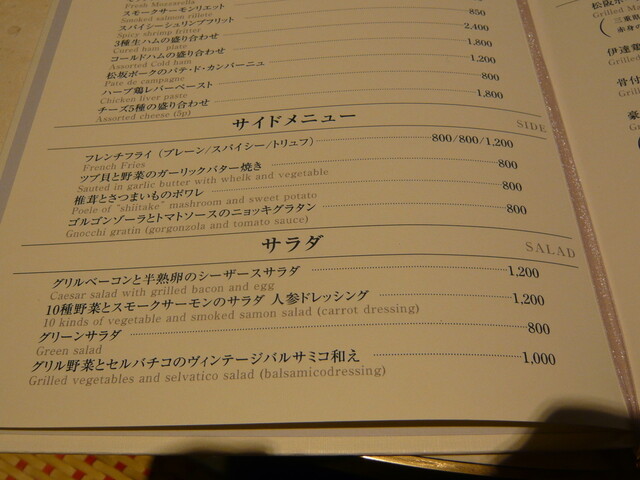 Fresh Mozzarella
スモークサーモンリエット 850
Smoked salmon rillete
スパイシーシュリンプフリット 2,400
Spicy shrimp fritter
3種生ハムの盛り合わせ 1,800
Cured ham plate
コールドハムの盛り合わせ 1,200
Assorted Cold ham
松坂ポークのパテ・ド・カンパーニュ 800
Pate de campagne
ハーブ鶏レバーペースト
Chicken liver paste
チーズ5種の盛り合わせ 1,800
Assorted cheese (5p)
サイドメニュー SIDE
フレンチフライ (プレーン/スパイシー/トリュフ) 800/800/1,200
French Fries
ツブ貝と野菜のガーリックバター焼き 800
Sauted in garlic butter with whelk and vegetable
椎茸とさつまいものポワレ 800
Poele of "shiitake" mashroom and sweet potato
ゴルゴンゾーラとトマトソースのニョッキグラタン 800
Gnocchi gratin (gorgonzola and tomato sauce)
サラダ SALAD
グリルベーコンと半熟卵のシーザースサラダ 1,200
Caesar salad with grilled bacon and egg
10種野菜とスモークサーモンのサラダ 人参ドレッシング 1,200
10 kinds of vegetable and smoked samon salad (carrot dressing)
グリーンサラダ 800
Green salad
グリル野菜とセルバチコのヴィンテージバルサミコ和え 1,000
Grilled vegetables and selvatico salad (balsamicodressing)
松阪ポ
Grilled Ma
三重県
赤身の
伊達鶏
Grill
骨付
Gril
豪
Gr